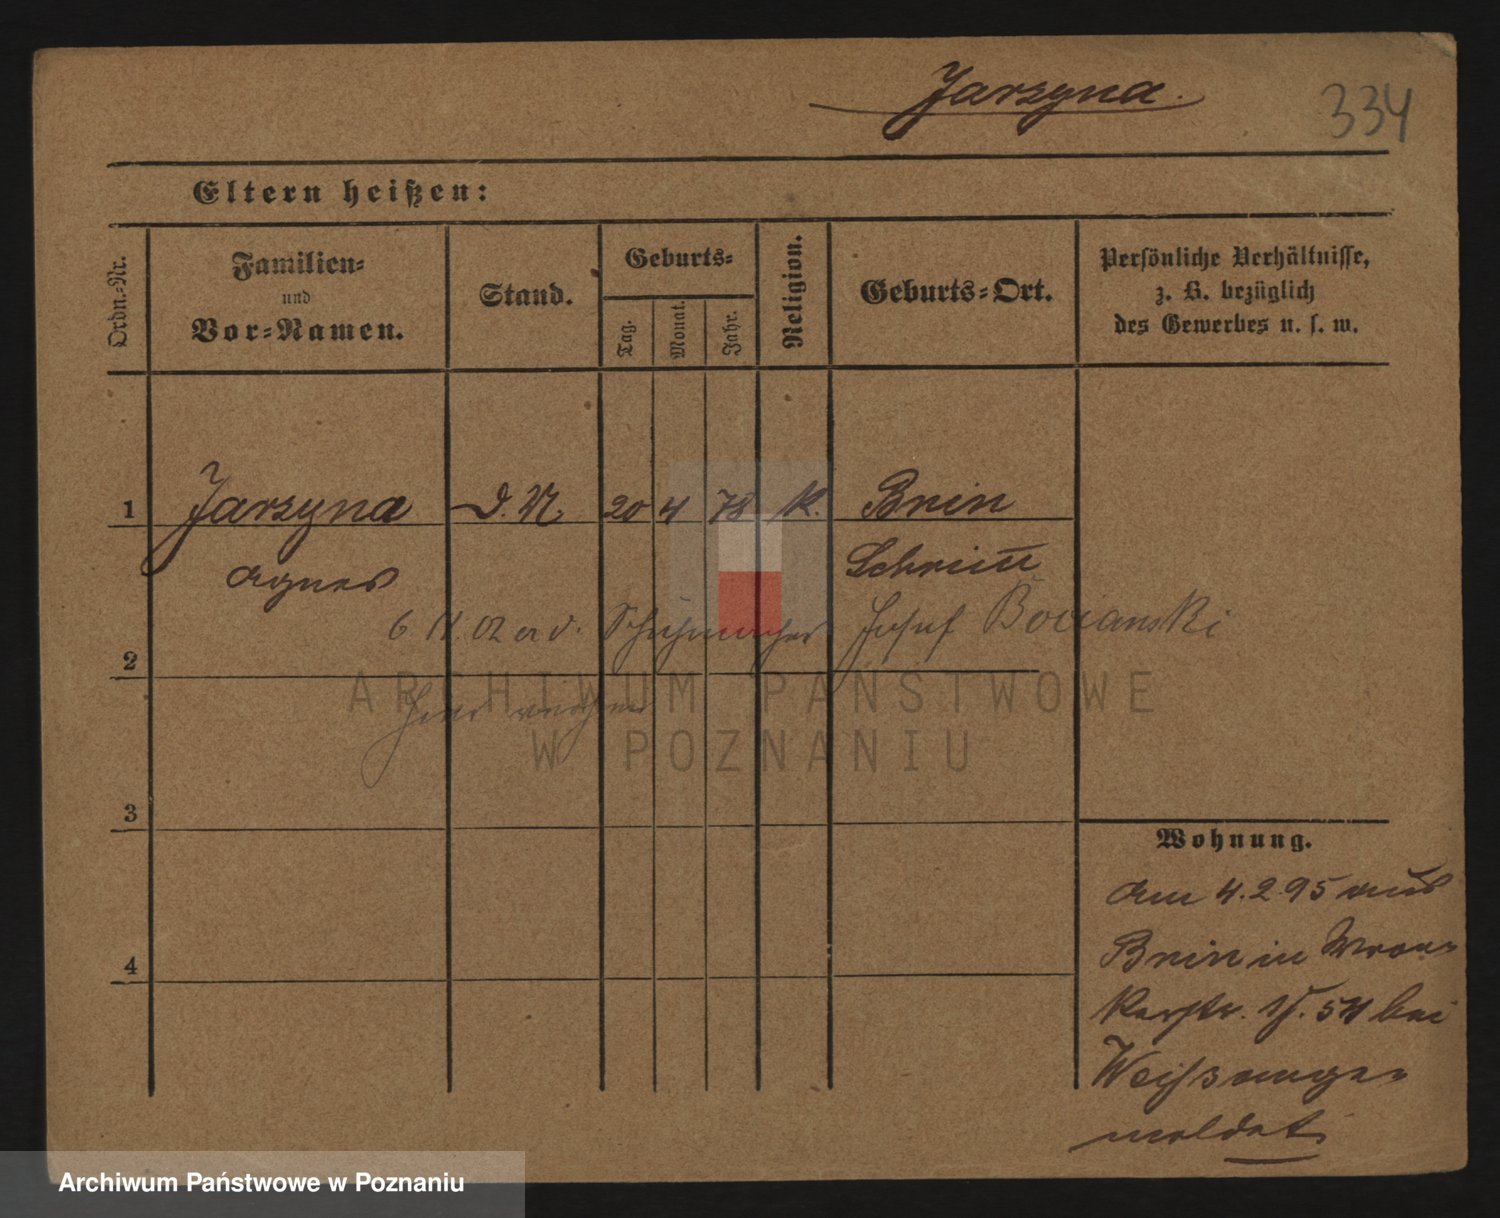 Jarzyna.
334
Eltern heißen:
Ordn.-Nr.
Familien-
und
Vor-Namen.
Stand.
Geburts-
Tag.
Monat.
Jahr.
Religion.
Geburts-Ort.
Persönliche Verhältnisse,
z. B. bezüglich
des Gewerbes u. s. w.
1 Jarzyna D. M. 20 4 78 k. Bnin
Agnes Schrim̄
6 11.02 a d. Schuhmacher Josef Bocianski
2
hier
ARCHIWUM PAŃSTWOWE
W POZNANIU
3
Wohnung.
am 4.2.95 aus
Bnin in Wron-
kerstr. 54 bei
4
meldet
Archiwum Państwowe w Poznaniu